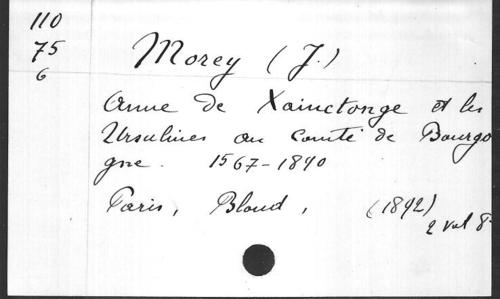 110
75
6
Morey (J.)
Anne de Xainctonge et les
Ursulines au comté de Bourgo
gne. 1567-1890
Paris, Bloud, (1892)
2 vol 8º